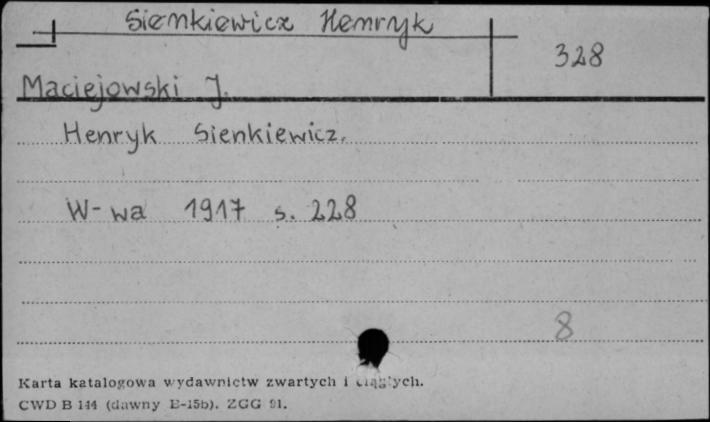 Sienkiewicz Henryk
328
Maciejowski J.
Henryk Sienkiewicz.
W-wa 1917 s. 228
8
Karta katalogowa wydawnictw zwartych i ciągłych.
CWD B 144 (dawny E-15b). ZGG 91.